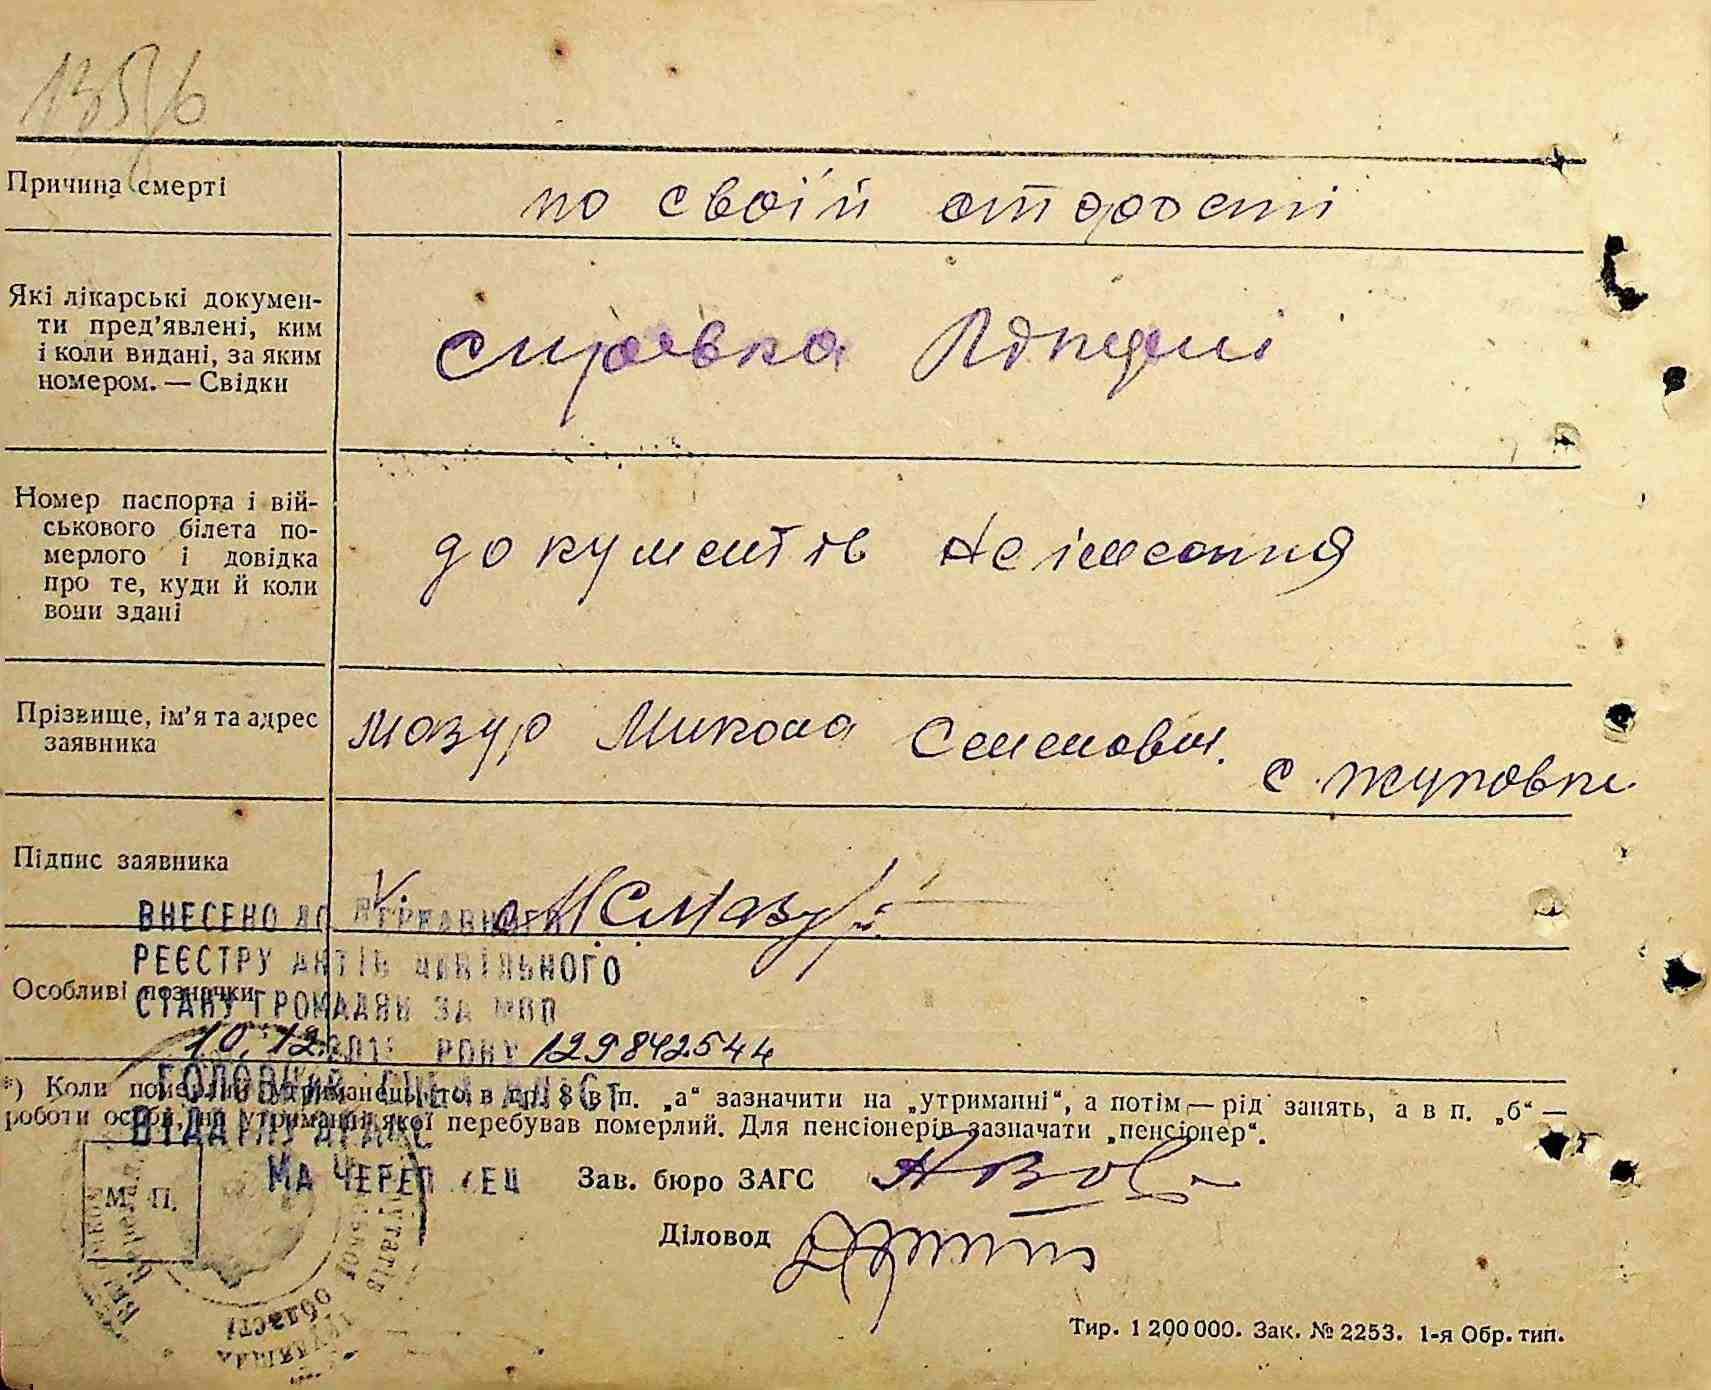 135/6
Причина смерті
по своїй старості
Які лікарські докумен-
ти пред'явлені, ким
і коли видані, за яким
номером. — Свідки
справка
Номер паспорта і вій-
ськового білета по-
мерлого і довідка
про те, куди й коли
вони здані
документів не
Прізвище, ім'я та адрес
заявника
Мазур Микола Семенович.
с.
Підпис заявника
МСМазур
ВНЕСЕНО ДО ДЕРЖАВНОГО
РЕЄСТРУ АКТІВ ЦИВІЛЬНОГО
Особливі позначки
СТАНУ ГРОМАДЯН ЗА №
10.12. РОКУ 129842544
ГОЛОВНИЙ СПЕЦІАЛІСТ
*) Коли померлий утриманець, то в гр. 8 в п. „а“ зазначити на „утриманні“, а потім — рід занять, а в п. „б“ —
роботи особи, на утриманні якої перебував померлий. Для пенсіонерів зазначати „пенсіонер“.
М. П.
Зав. бюро ЗАГС
Діловод
області
Тир. 1 200 000. Зак. № 2253. 1-я Обр. тип.